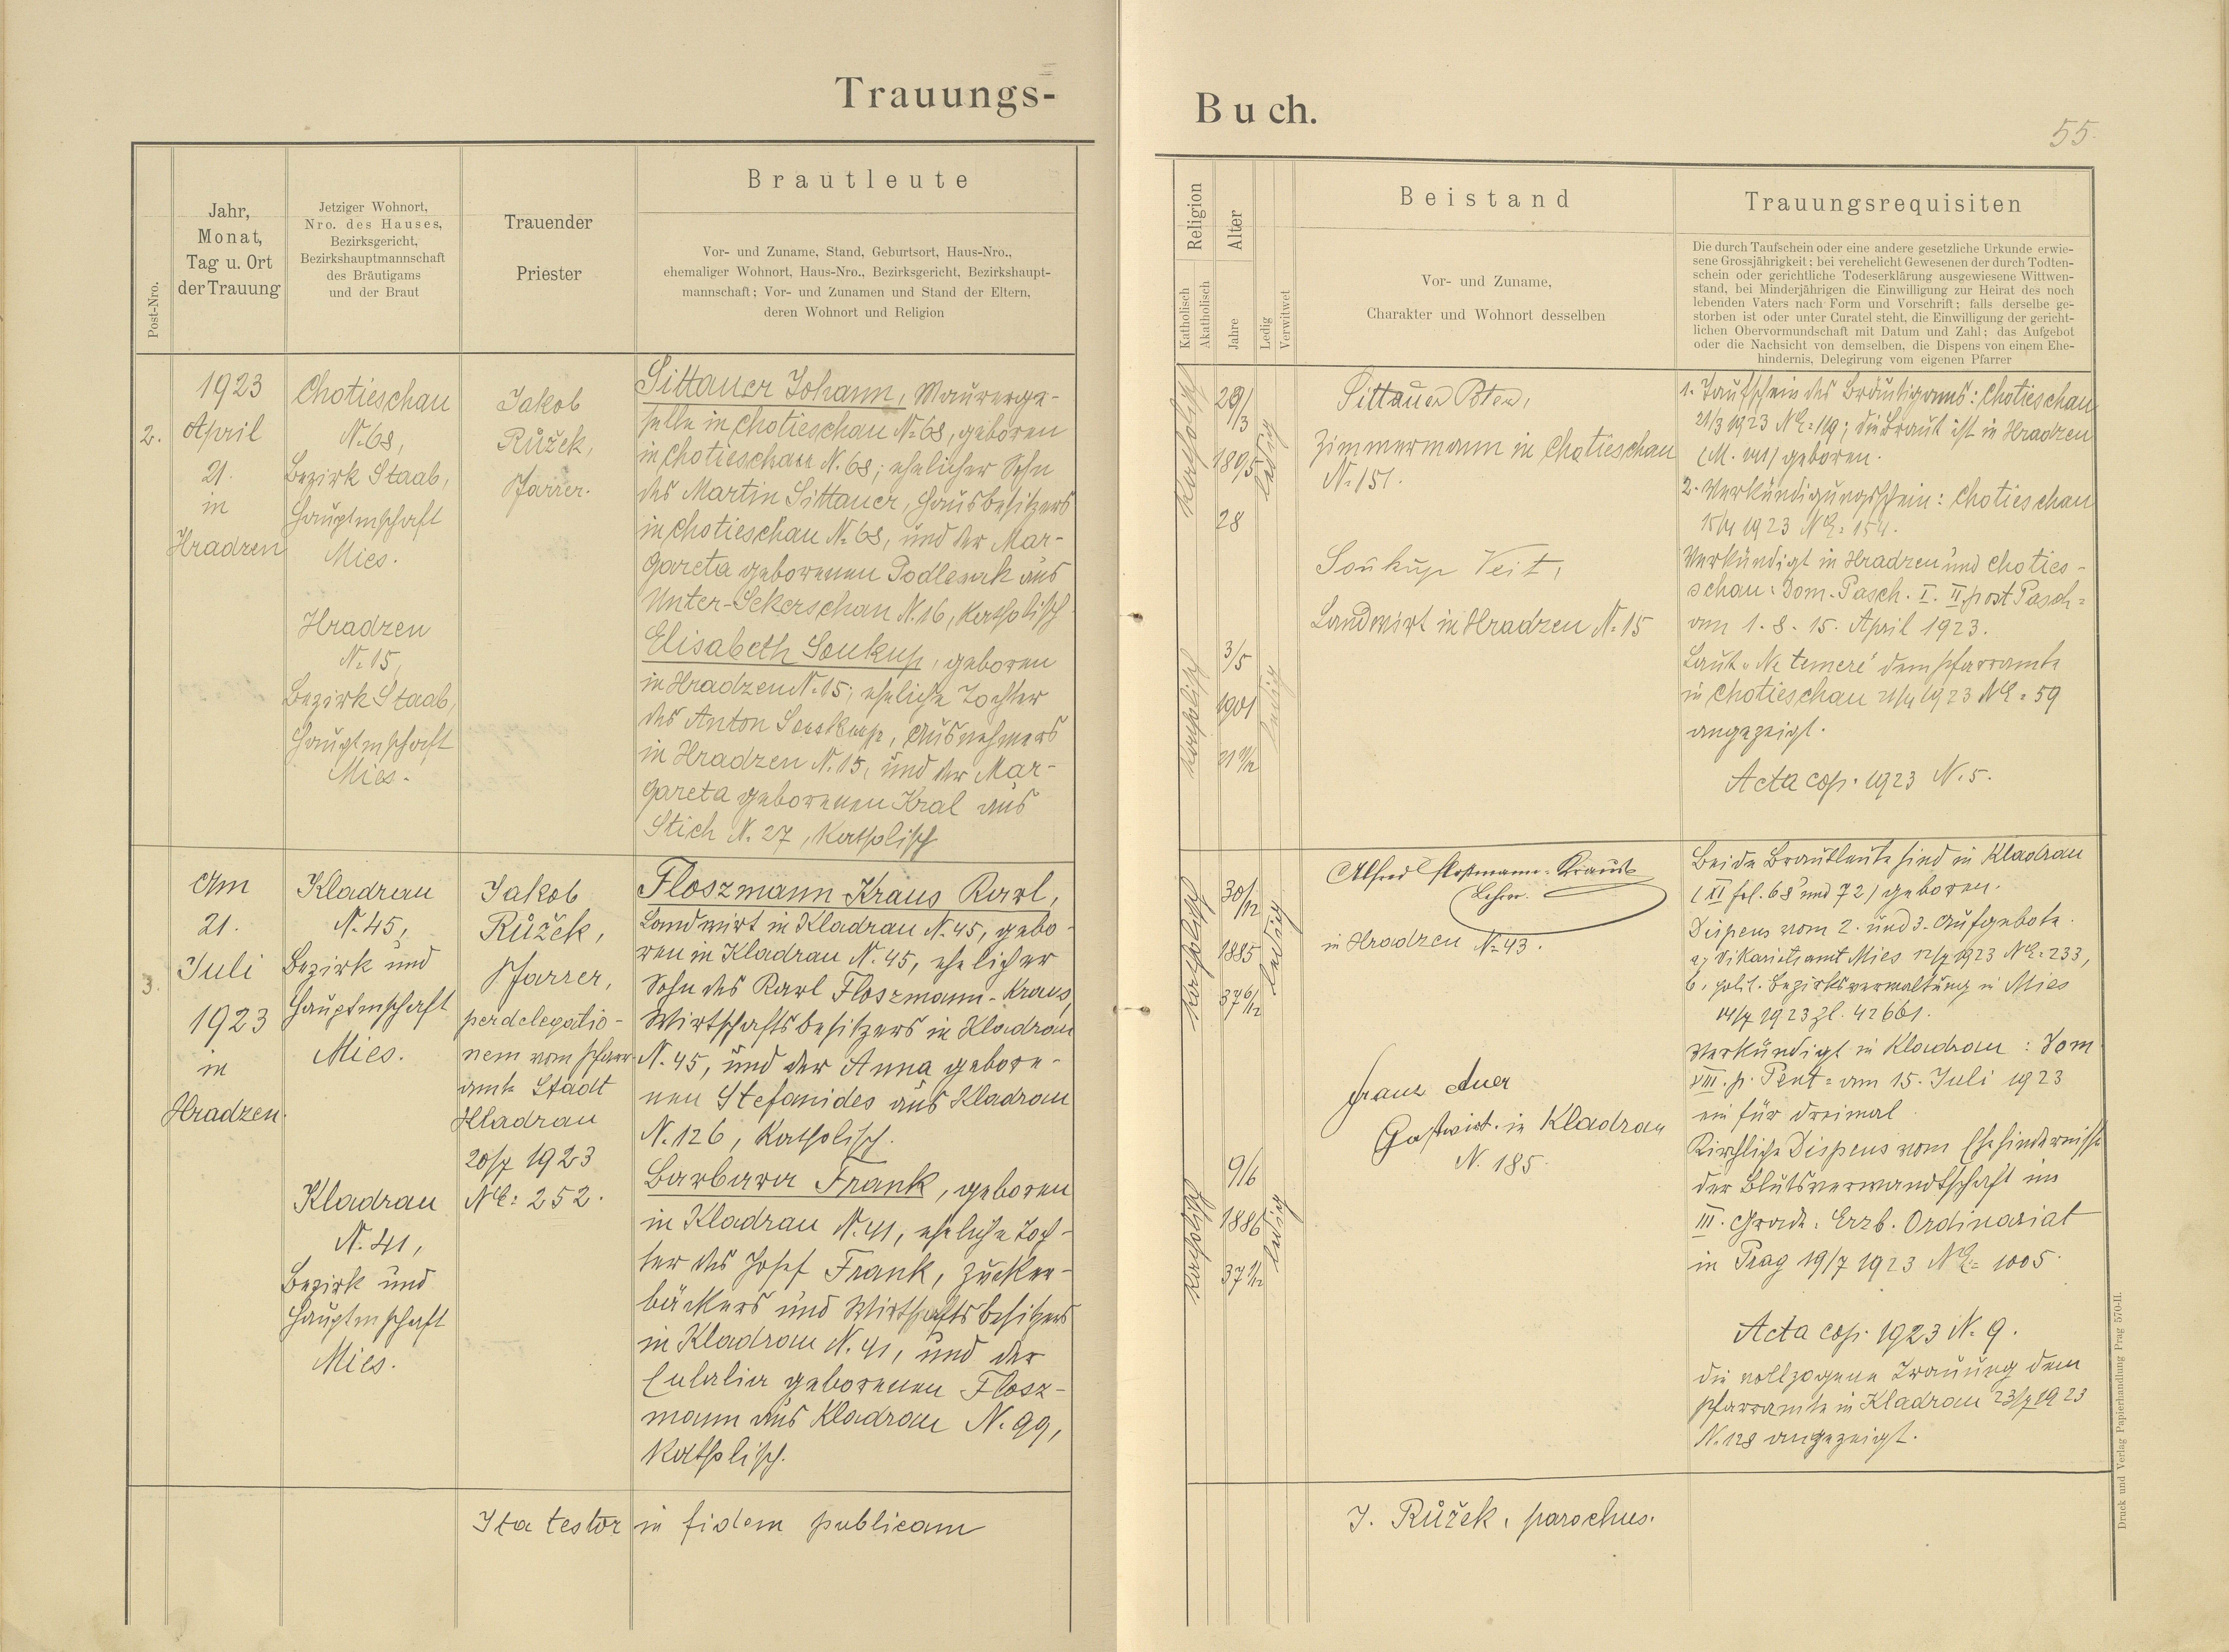 Trauungs-
Buch.
55.
Post-Nro.
Jahr,
Monat,
Tag u. Ort
der Trauung
Jetziger Wohnort,
Nro. des Hauses,
Bezirksgericht,
Bezirkshauptmannschaft
des Bräutigams
und der Braut
Trauender
Priester
Brautleute
Vor- und Zuname, Stand, Geburtsort, Haus-Nro.,
ehemaliger Wohnort, Haus-Nro., Bezirksgericht, Bezirkshaupt-
mannschaft; Vor- und Zunamen und Stand der Eltern,
deren Wohnort und Religion
Religion
Katholisch
Akatholisch
Alter
Jahre
Ledig
Verwitwet
Beistand
Vor- und Zuname,
Charakter und Wohnort desselben
Trauungsrequisiten
Die durch Taufschein oder eine andere gesetzliche Urkunde erwie-
sene Grossjährigkeit; bei verehelicht Gewesenen der durch Todten-
schein oder gerichtliche Todeserklärung ausgewiesene Wittwen-
stand, bei Minderjährigen die Einwilligung zur Heirat des noch
lebenden Vaters nach Form und Vorschrift; falls derselbe ge-
storben ist oder unter Curatel steht, die Einwilligung der gericht-
lichen Obervormundschaft mit Datum und Zahl; das Aufgebot
oder die Nachsicht von demselben, die Dispens von einem Ehe-
hindernis, Delegirung vom eigenen Pfarrer
2.
1923
April
21.
in
Hradzen
Chotieschau
N. 68,
Bezirk Staab,
Hauptmschaft
Mies.
Hradzen
N. 15,
Bezirk Staab,
Hauptmschaft
Mies.
Jakob
Růžek,
Pfarrer.
Sittauer Johann, Maurerge-
selle in Chotieschau N. 68, geboren
in Chotieschau N. 68; ehelicher Sohn
des Martin Sittauer, Hausbesitzers
in Chotieschau N. 68, und der Mar-
gareta geborenen Podlesak aus
Unter-Sekerschan N. 16, katholisch
Elisabeth Soukup, geboren
in Hradzen N. 15; eheliche Tochter
des Anton Soukup, Ausnehmers
in Hradzen N. 15, und der Mar-
gareta geborenen Kral aus
Stich N. 27, katholisch
katholisch
28
ledig
katholisch
3/5
1901
ledig
Sittauer
Zimmermann in Chotieschau
N. 151.
Soukup Veit,
Landwirt in Hradzen N. 15
1. Taufschein des Bräutigams: Chotieschau
21/3 1923 NE: 119; die Braut ist in Hradzen
geboren.
2. Verkündigungsschein: Chotieschau
15/4 1923 NE: 154.
Verkündigt in Hradzen und Choties-
schau: Dom. Pasch. I. II. post Pasch=
am 1. 8. 15. April 1923.
Laut "Ne temere" dem Pfarramte
in Chotieschau 21/4 1923 NE: 59
angezeigt.
Acta cop. 1923 N. 5.
3.
Am
21.
Juli
1923
in
Hradzen.
Kladrau
N. 45,
Bezirk und
Hauptmschaft
Mies.
Kladrau
N. 41,
Bezirk und
Hauptmschaft
Mies.
Jakob
Růžek,
Pfarrer,
per delegatio-
nem vom Pfarr-
amte Stadt
Kladrau
20/7 1923
NE: 252.
Floszmann Kraus Karl,
Landwirt in Kladrau N. 45, gebo-
ren in Kladrau N. 45, ehelicher
Sohn des Karl Floszmann-Kraus,
Wirtschaftsbesitzers in Kladrau
N. 45, und der Anna gebore-
nen Stefanides aus Kladrau
N. 126, katholisch.
Barbara Frank, geboren
in Kladrau N. 41, eheliche Toch-
ter des Josef Frank, Zucker-
bäckers und Wirtschaftsbesitzers
in Kladrau N. 41, und der
Eulalia geborenen Flosz-
mann aus Kladrau N. 99,
katholisch.
katholisch
30/12
1885
37 6/12
ledig
katholisch
9/6
1886
37 1/12
ledig
Alfred Flossmann-Kraus
Lehrer.
in Hradzen N. 43.
Franz Auer
Gastwirt in Kladrau
N. 185.
Beide Brautleute sind in Kladrau
(XI fol. 68 und 72) geboren.
Dispens vom 2. und 3. Aufgebote.
a, Vikariatsamt Mies 12/7 1923 NE: 233,
b, polit. Bezirksverwaltung in Mies
14/7 1923 Zl. 42661.
Verkündigt in Kladrau: Dom
VIII. p. Pent= am 15. Juli 1923
ein für dreimal
Kirchliche Dispens vom Ehehindernisse
der Blutsverwandtschaft im
III. Grade: Erzb. Ordinariat
in Prag 19/7 1923 NE: 1005.
Acta cop. 1923 N. 9.
Die vollzogene Trauung dem
Pfarramte in Kladrau 23/7 1923
N. 128 angezeigt.
Ita testor in fidem publicam
J. Růžek, parochus.
Druck und Verlag Papierhandlung Prag 570-II.